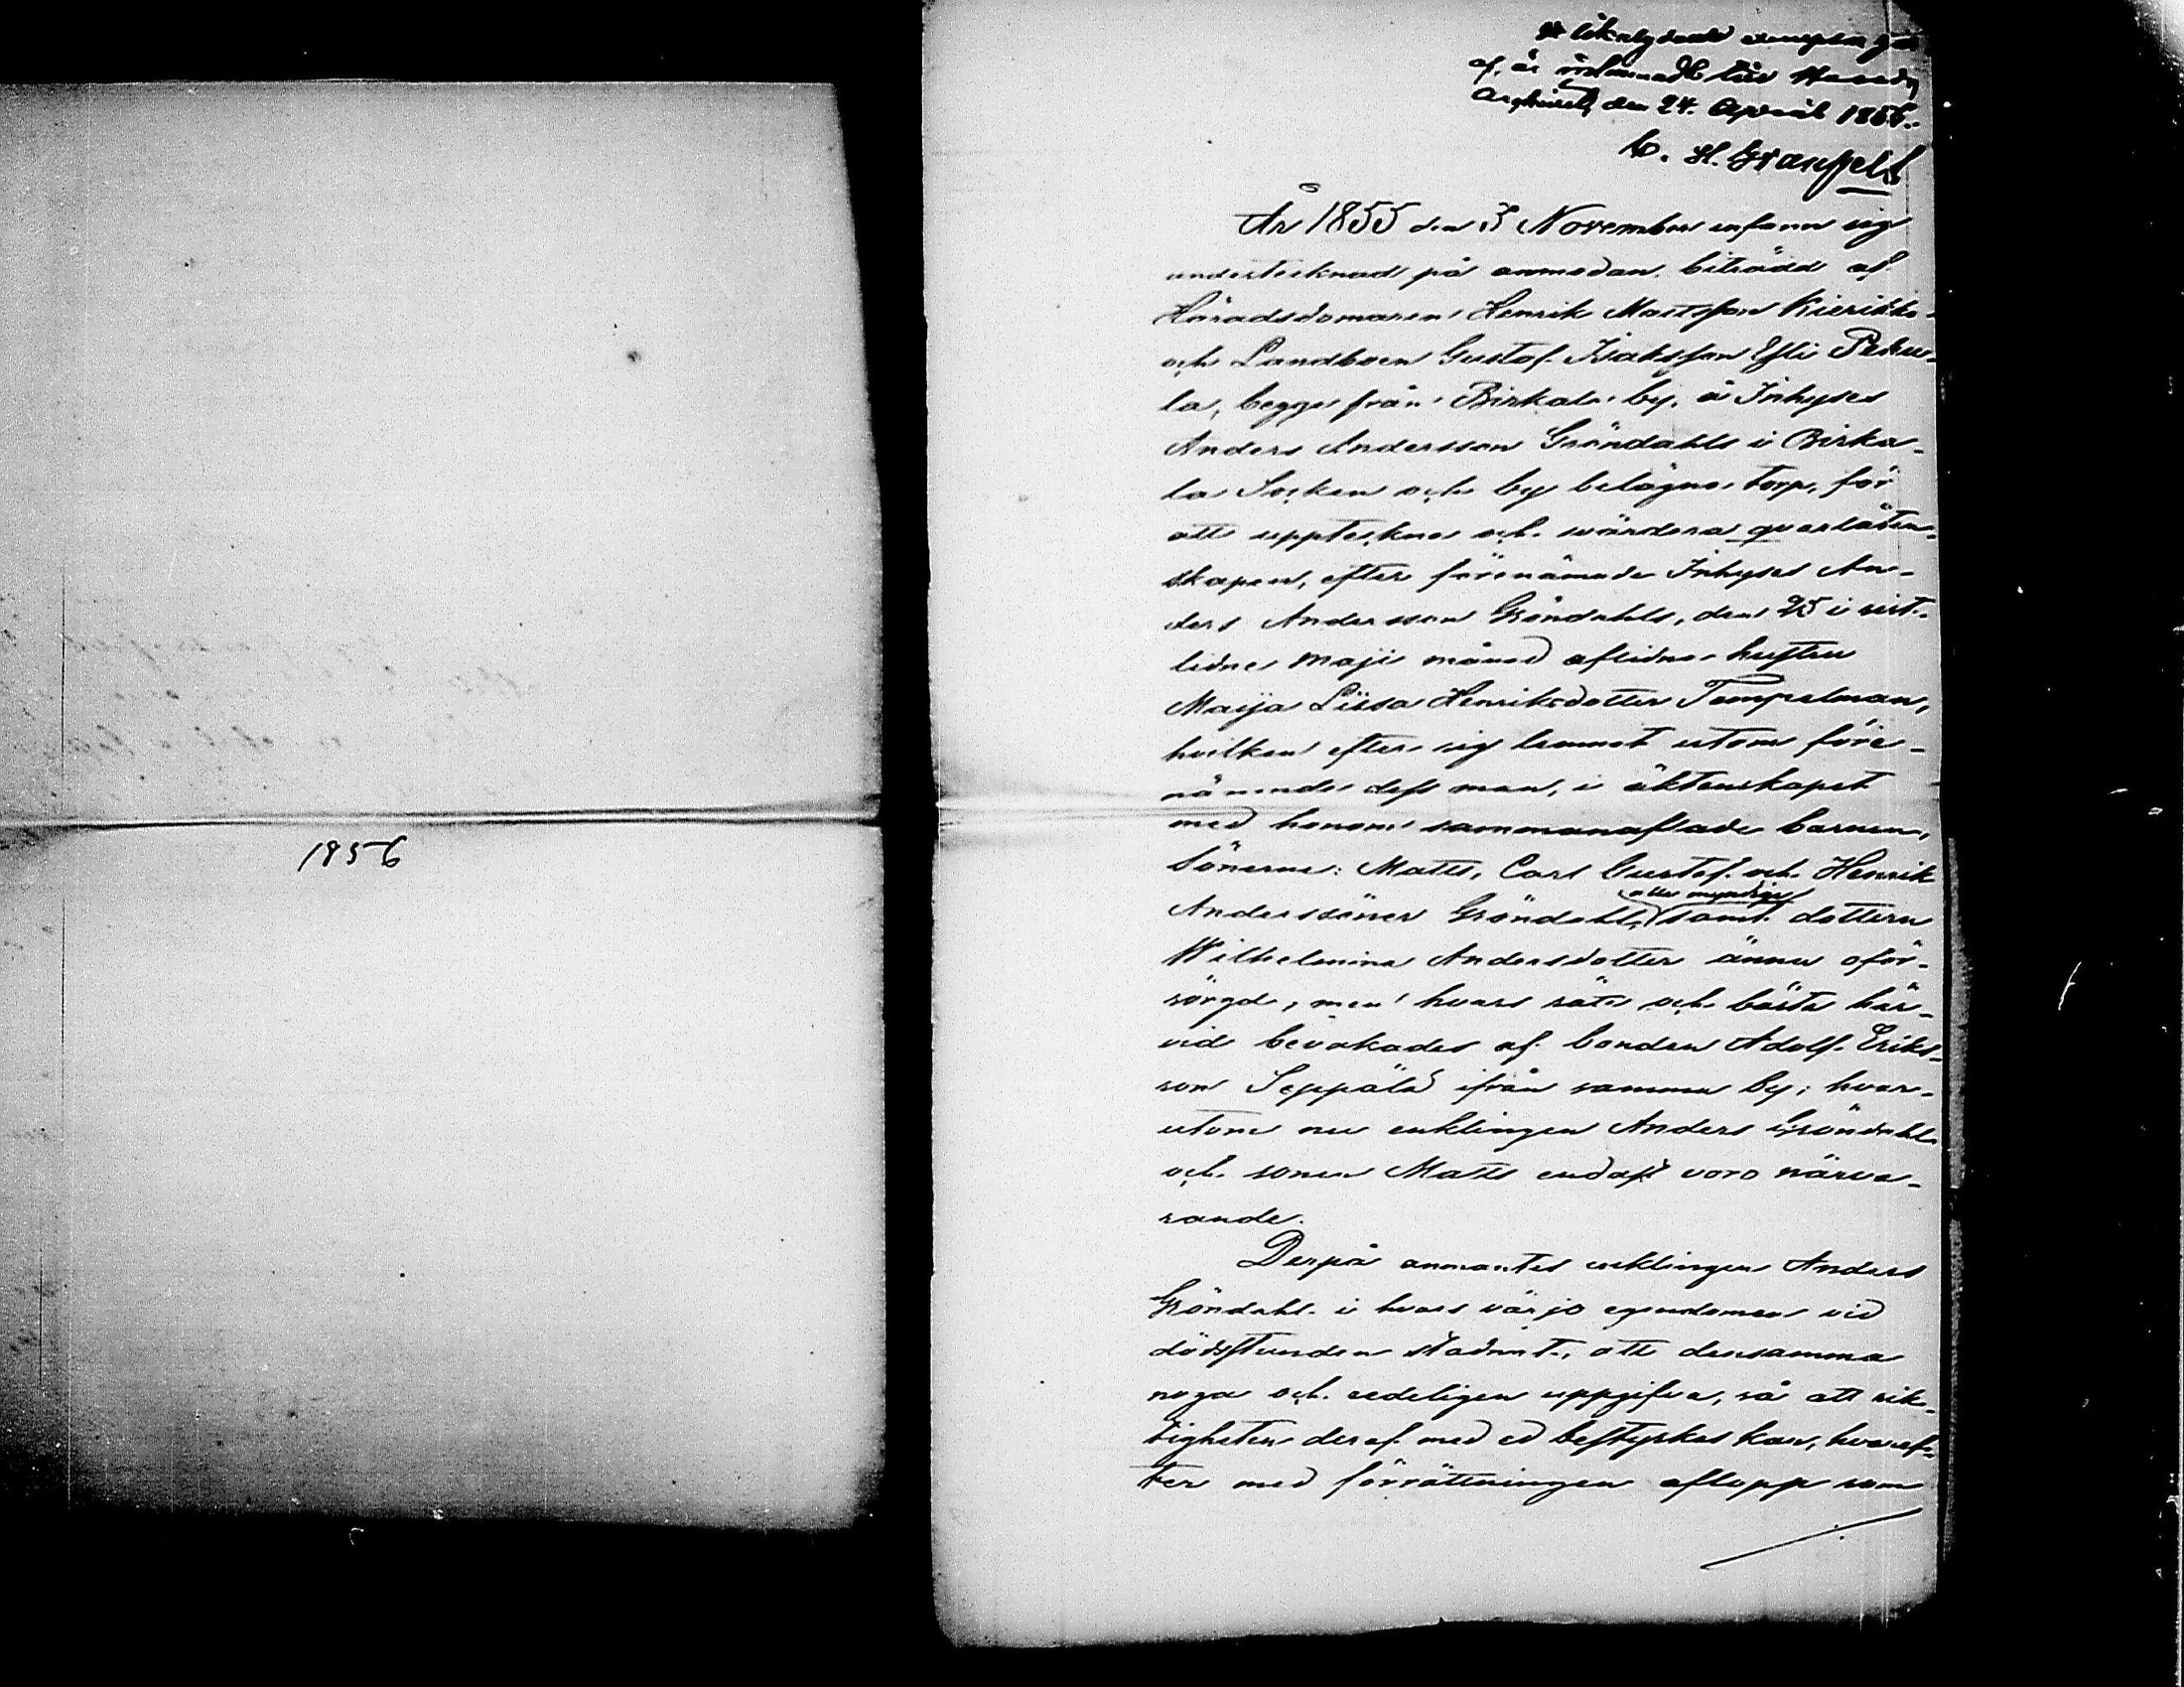 1856
et likalydande exemplar här
af, är inlemnadt till Härads
Archivet, den 24. April 1856.
C. H. Granfelt
År 1855 den 3 November infann sig
undertecknad på anmodan, biträdd af
Häradsdomaren Henrik Mattsson Kierikka
och Landboen Gustaf Isaksson Esli Peku-
la, begge från Birkala by, å Inhyses
Anders Andersson Gröndahls i Birka-
la Socken och by belägne torp, för
att uppteckna och wärdera qvarlåten-
skapen, efter förenämnde Inhyses An-
ders Andersson Gröndahls, den 25 i sist-
lidne Maji månad aflidne hustru
Maija Liisa Henriksdotter Tempelman,
hvilken efter sig lemnat utom före-
nämnde dess man, i äktenskapet
med honom sammanaflade barnen,
Sönerne: Matts, Carl Gustaf och Henrik
Anderssöner Gröndahl, alla myndige samt dottern
Wilhelmina Andersdotter ännu oför-
sörgd, men hvars rätt och bästa här-
vid bevakades af bonden Adolf Eriks-
son Seppälä ifrån samma by; hvar-
utom nu enklingen Anders Gröndahl
och sonen Matts endast voro närva-
rande.
Derpå anmantes enklingen Anders
Gröndahl i hvars värjo egendomen vid
dödsstunden stadnat, att densamma
noga och redeligen uppgifva, så att rik-
tigheten deraf med ed bestyrkas kan, hvaref-
ter med förrättningen aflopp som